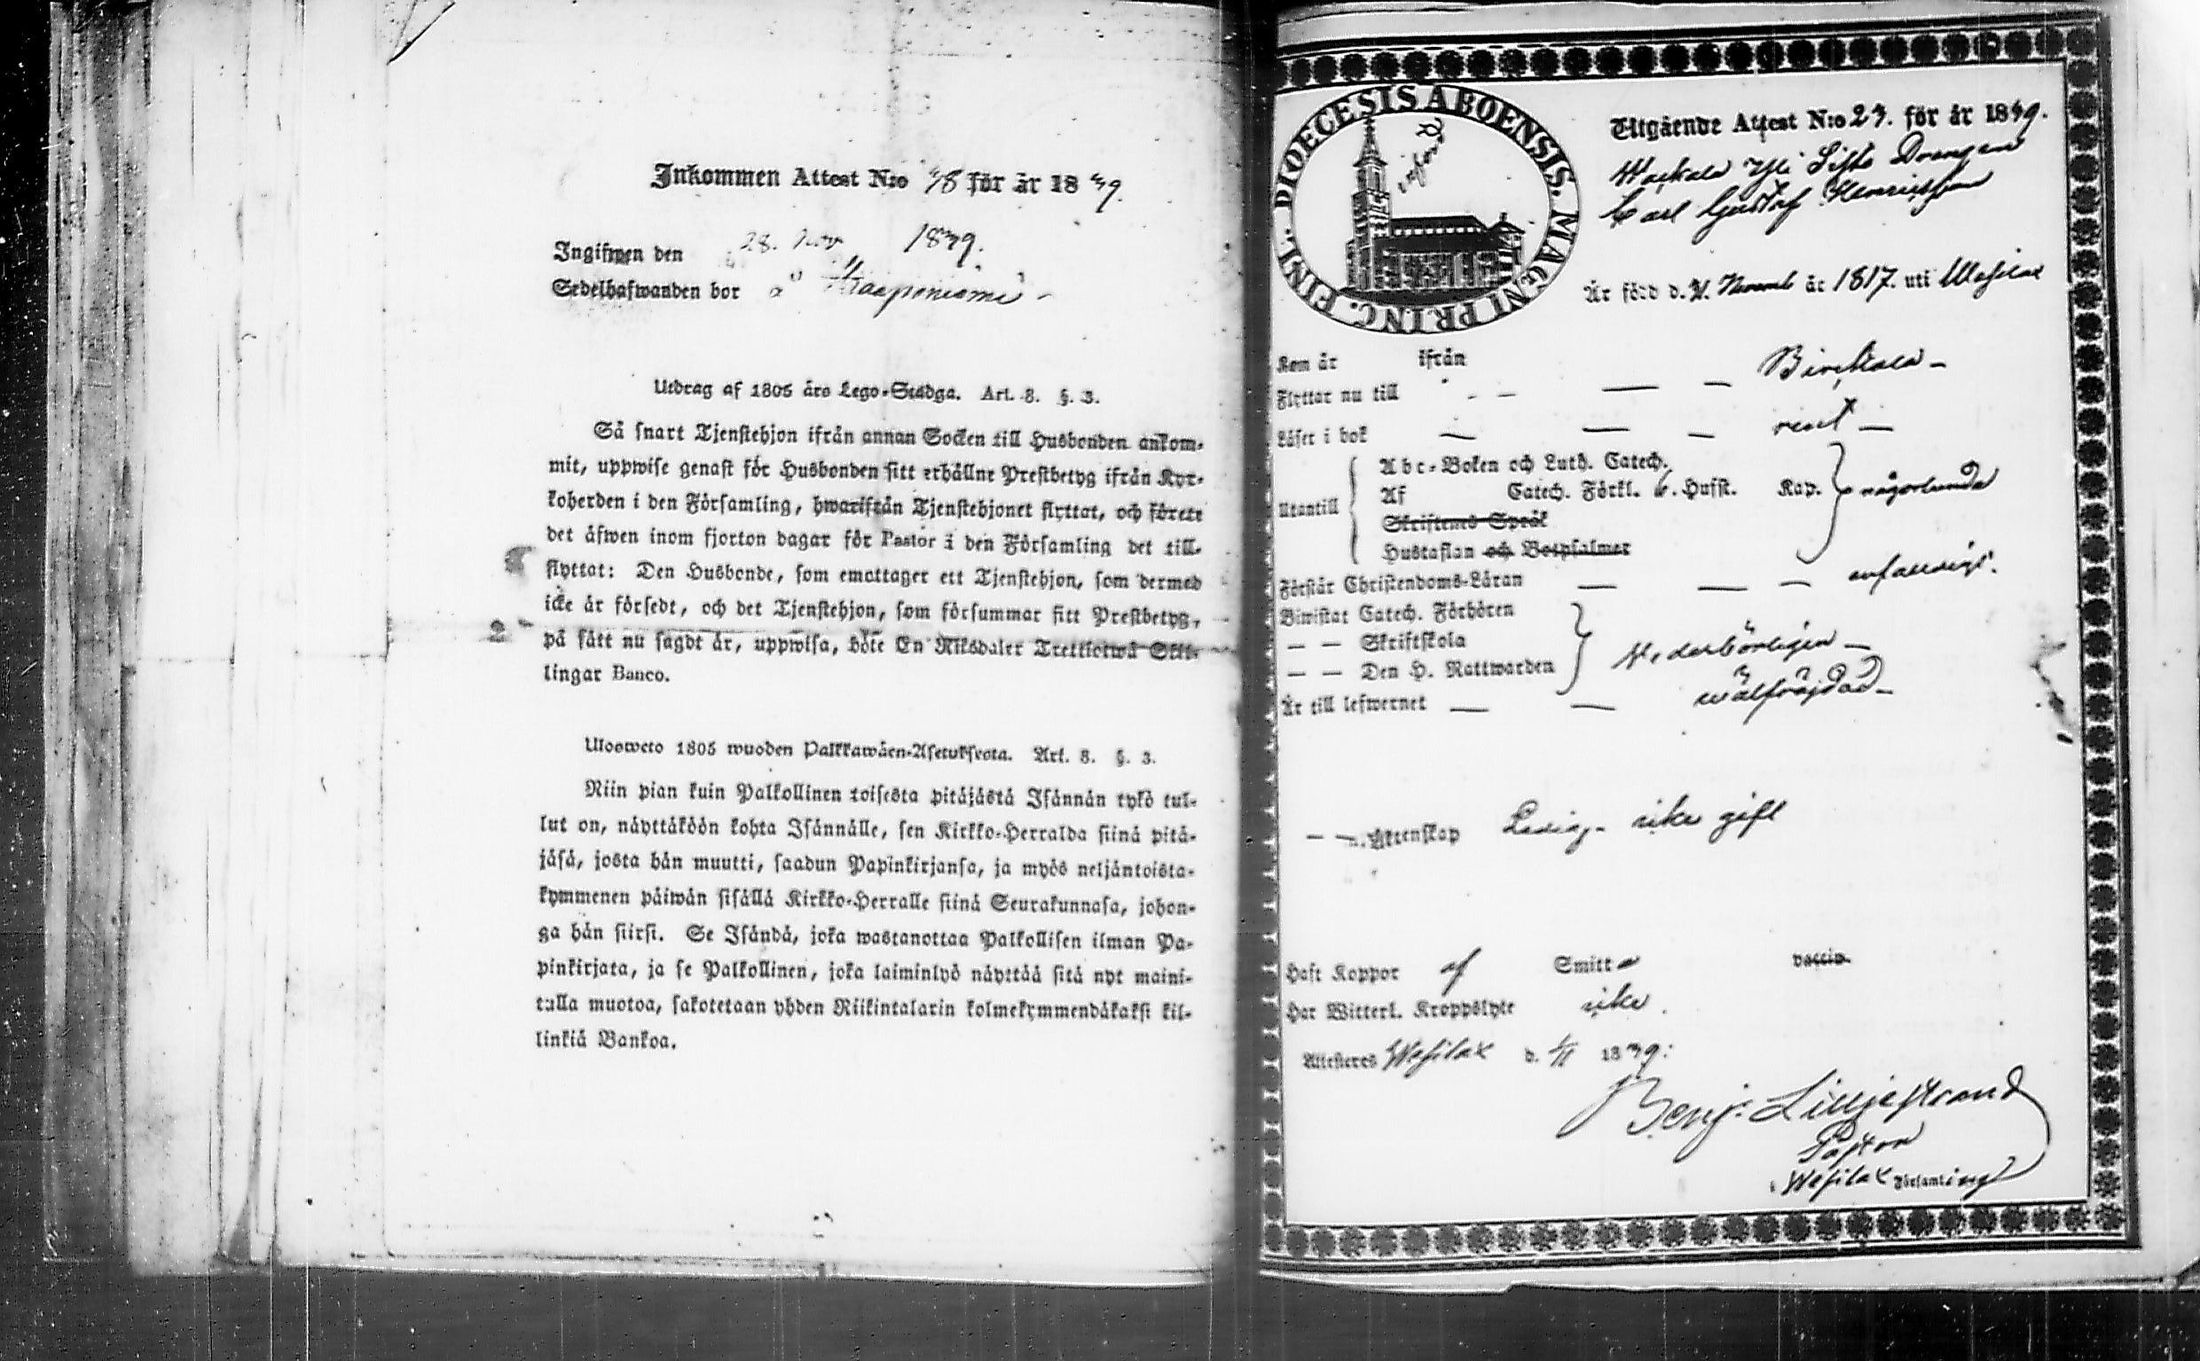 Inkommen Attest N:o 48 för år 1839.
Ingifwen den 28. Nov 1839.
Sedelhafwanden bor å Haaponiemi
Utdrag af 1805 års Lego-Stadga. Art. 8. §. 3.
Så snart Tjenstehjon ifrån annan Socken till Husbonden ankom-
mit, uppwise genast för Husbonden sitt erhållne Prestbetyg ifrån Kyr-
koherden i den Församling, hwarifrån Tjenstehjonet flyttat, och förete
det äfwen inom fjorton dagar för Pastor i den Församling det till-
flyttat: Den Husbonde, som emottager ett Tjenstehjon, som dermed
icke är försedt, och det Tjenstehjon, som försummar sitt Prestbetyg,
på sätt nu sagdt är, uppwisa, böte En Riksdaler Trettiotwå Skil-
lingar Banco.
Ulosweto 1805 wuoden Palkkawäen-Asetuksesta. Art. 8. §. 3.
Niin pian kuin Palkollinen toisesta pitäjästä Isännän tykö tul-
lut on, näyttäköön kohta Isännälle, sen Kirkko-Herralda siinä pitä-
jäsä, josta hän muutti, saadun Papinkirjansa, ja myös neljäntoista-
kymmenen päiwän sisällä Kirkko-Herralle siinä Seurakunnasa, johon-
ga hän siirsi. Se Isändä, joka wastanottaa Palkollisen ilman Pa-
pinkirjata, ja se Palkollinen, joka laiminlyö näyttää sitä nyt maini-
tulla muotoa, sakotetaan yhden Riikintalarin kolmekymmendäkaksi kil-
linkiä Bankoa.
FINL. DIOECESIS ABOENSIS. MAGNI PRINC.
införd
Utgående Attest N:o 23. för år 1839.
Drengen
Carl Gustaf Henricsson
Är född d. Novemb år 1817. uti Wesilax
Kom år ifrån
Flyttar nu till — — — Birckala —
Läser i bok — — — rent —
Utantill
Abc-Boken och Luth. Catech.
Af Catech. Förkl. Hufst. Kap. någorlunda
Skriftens Språk
Hustaflan och Botpsalmer
Förstår Christendoms-Läran — — — enfaldigt.
Biwistat Catech. Förhören
— — Skriftskola
— — Den H. Nattwarden Wederbörligen —
Är till lefwernet — — wälfräjdad —
— — Äktenskap Ledig icke gift
Haft Koppor af Smitta vaccin.
Har Witterl. Kroppslyte icke
Attesteres Wesilax d. 1839:
Benj. Lilljestrand
Pastor
i Wesilax Församling